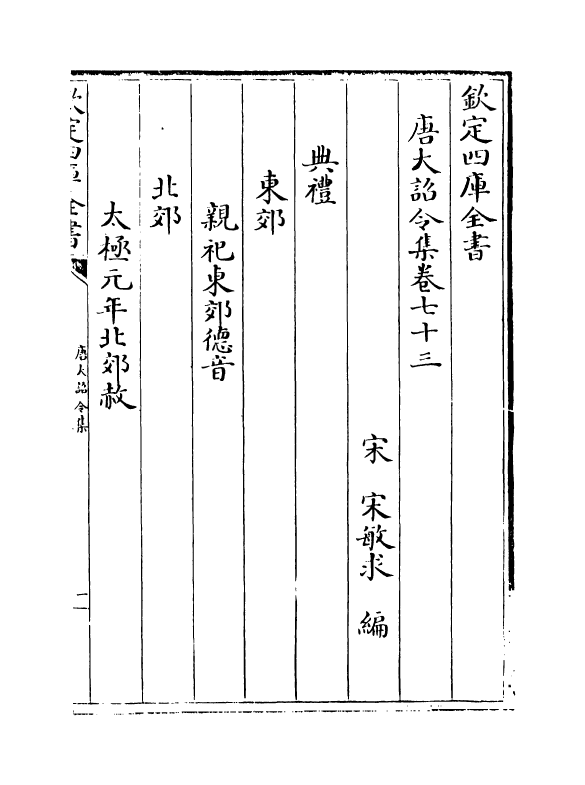 欽定四庫全書
唐大詔令集卷七十三
宋　宋敏求　編
典禮
東郊
親祀東郊德音
北郊
太極元年北郊赦
欽定四庫全書
唐大詔令集
二